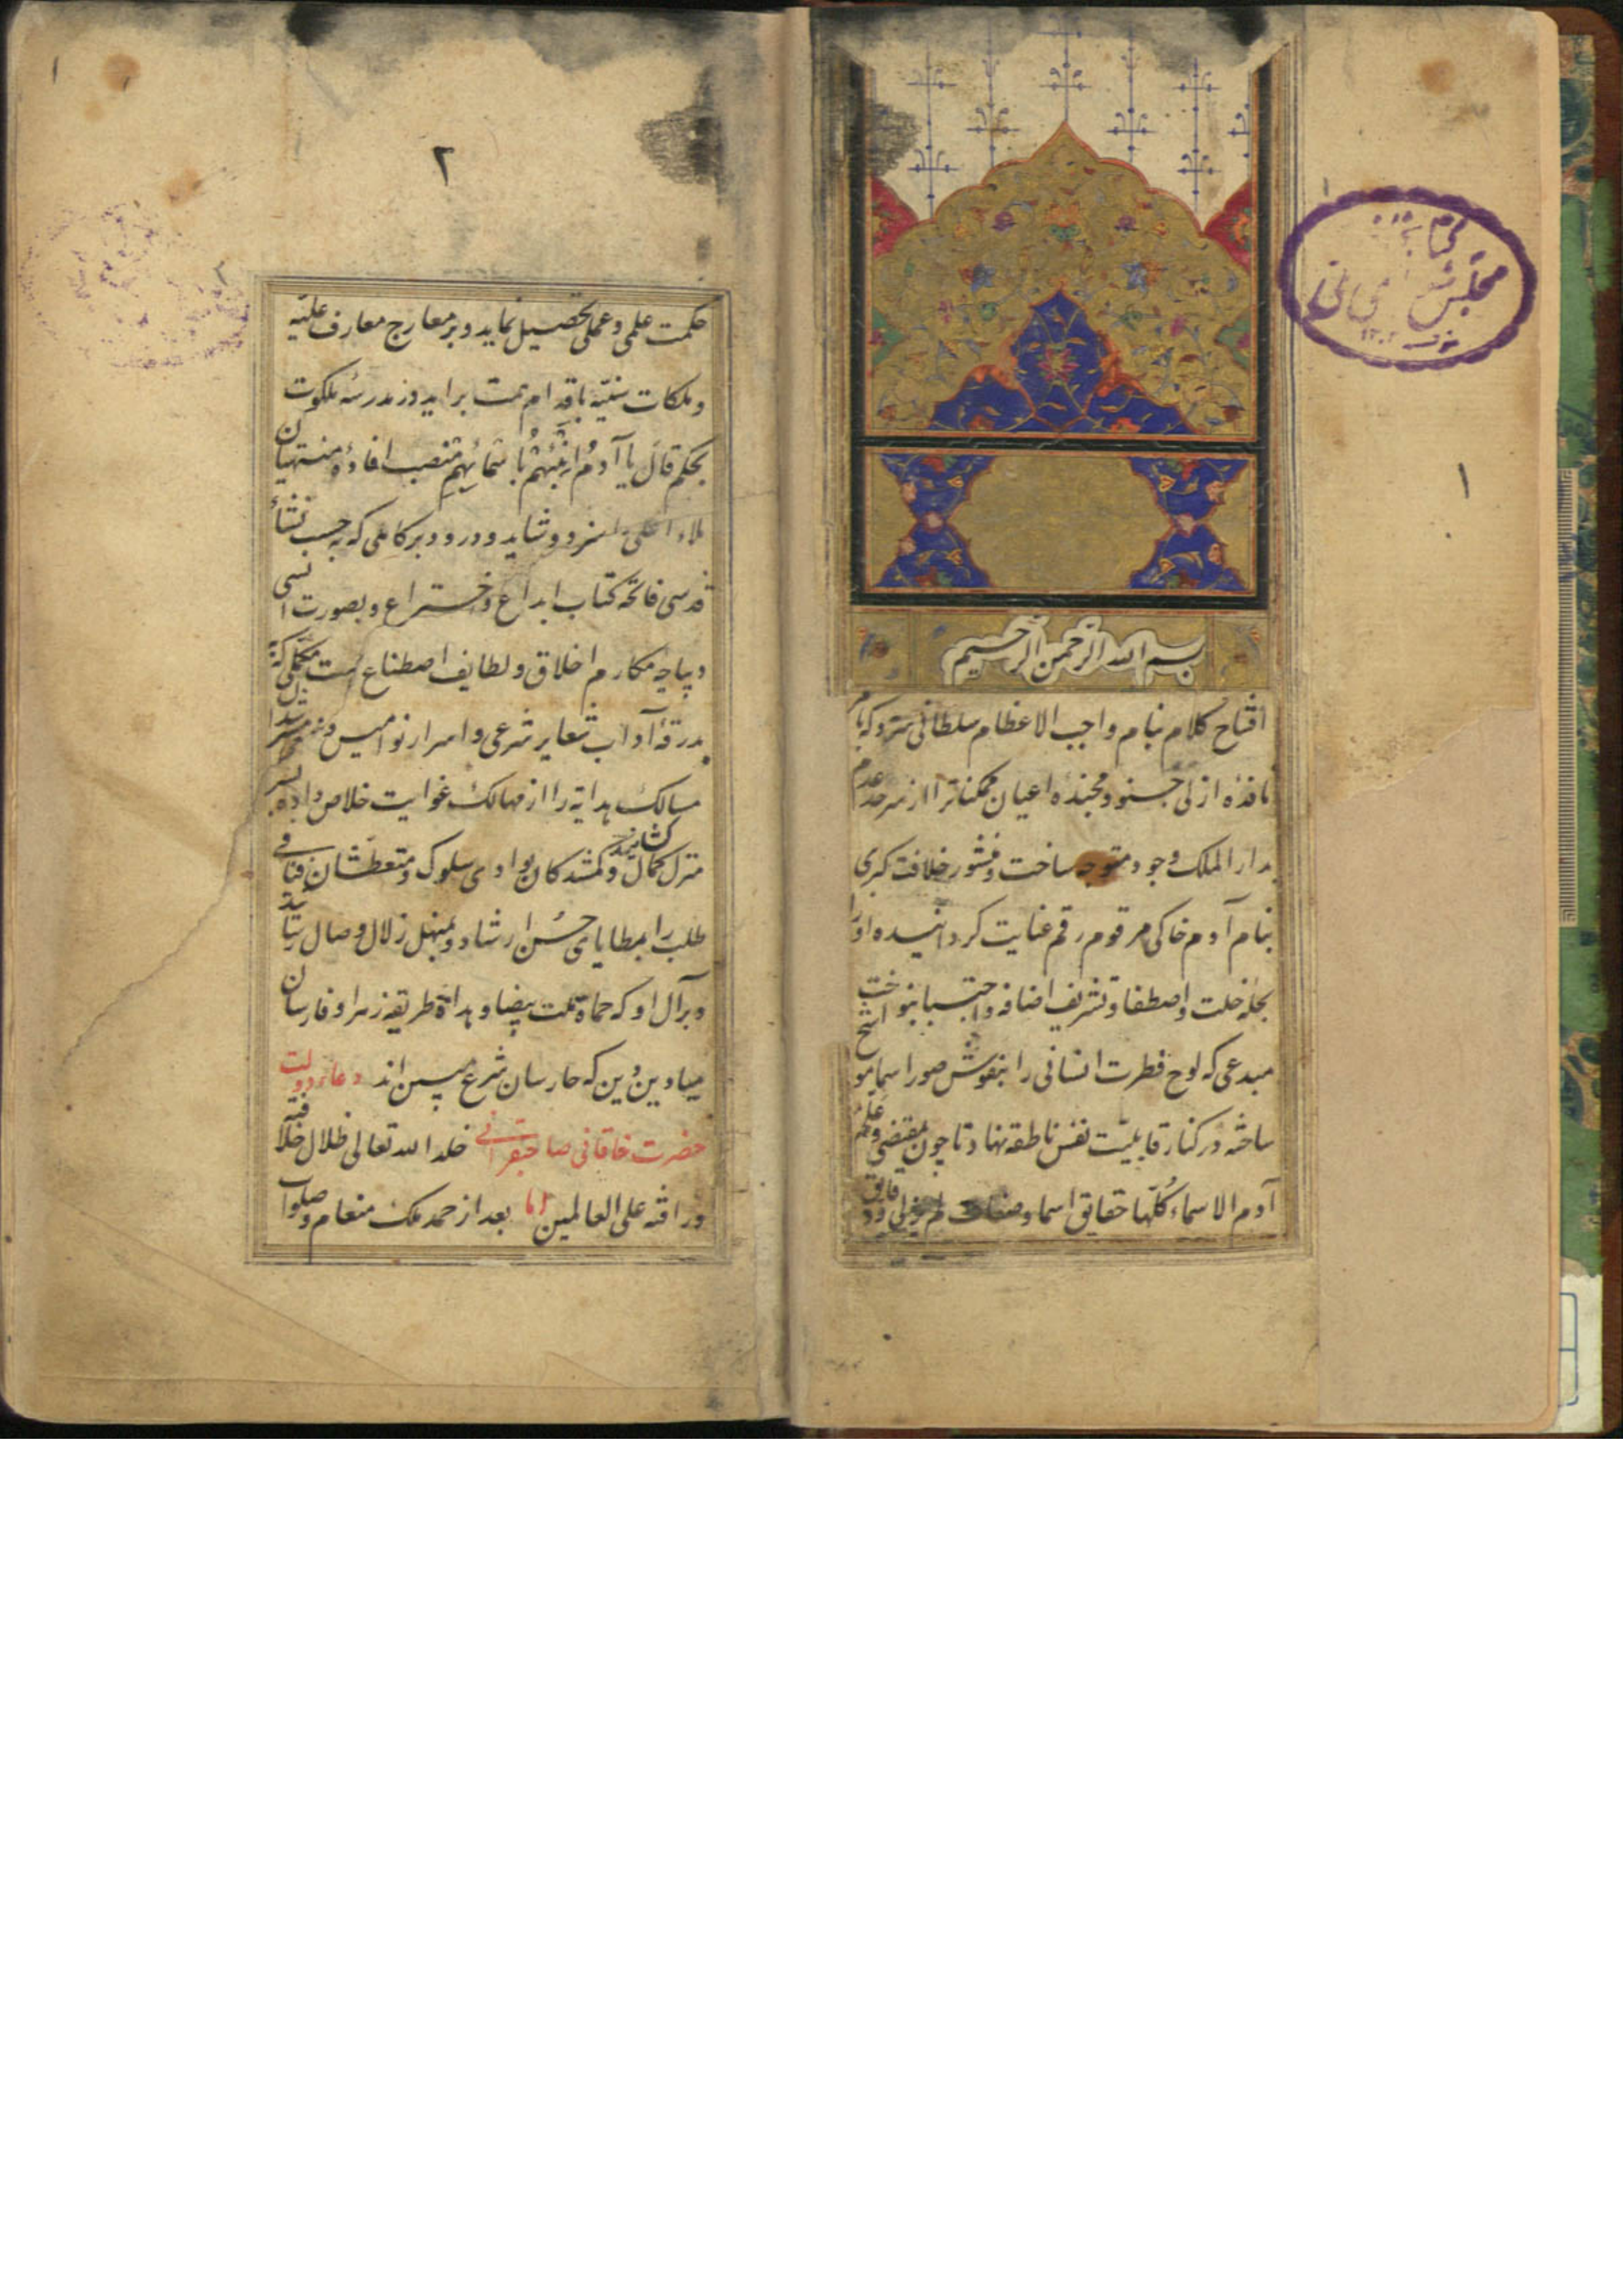 بسم الله الرحمن الرحیم
افتتاح کلام بنام واجب الاعظام سلطانی سزد که بامر
نافذهٔ ازلی جنود مجندهٔ اعیان ممکناترا از سرحد عدم
بدار الملک وجود متوجه ساخت و منشور خلافت کبری
بنام آدم خاکی مرقوم رقم عنایت کردانیده او را
بحلهٔ خلت و اصطفا و تشریف اضافه و اجتبا بنواخت
مبدعی که لوح فطرت انسانی را بنقوش صور اسما موشح
ساخته در کنار قابلیت نفس ناطقه نهاد تا چون بمقتضی و علم
آدم الاسماء کلها حقایق اسما و صفات لم یزلی و دقایق
۱
۲
حکمت علمی و عملی تحصیل نماید و بر معارج معارف علیه
و ملکات سنیه باقدام همت براید و در مدرسه ملکوت
بحکم قال یا آدم انبئهم باسمائهم منصب افادهٔ منتهیان
ملاء اعلی را سزد و شاید و درود بر کاملی که بحسب نشأ
قدسی فاتحه کتاب ابداع و اختراع و بصورت انسی
دیباچه مکارم اخلاق و لطایف اصطناع است مکملی که به
بدرقهٔ آداب شعایر شرعی و اسرار نوامیس
مسالک هدایة را از مهالک غوایت خلاص داده بسر
منزل کمال کشانید و کمشدکان بوادی سلوک و متعطشان فیافی
طلب را بمطایای حسن ارشاد و بمنهل زلال وصال رسانید
و برآل او که حماة ملت بیضا و هداة طریقه زهرا و فارسان
میادین دین که حارسان شرع مبین اند دعاء دولت
حضرت خاقانی صاحبقرانی خلد الله تعالی ظلال خلافته
و رافته علی العالمین اما بعد از حمد ملک منعام و صلوات